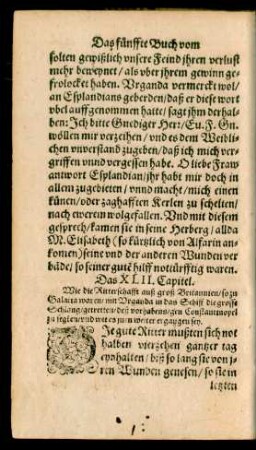 Das fünffte Buch vom
solten gewißlich vnsere Feind jhren verlust
mehr beweynet / als vber jhrem gewinn ge-
frolocket haben. Vrganda vermerckt wol /
an Esplandians geberden / daß er diese wort
vbel auffgenommen hatte / sagt jhm derhal-
ben: Ich bitte Gnediger Herr / Eu. F. Gn.
wöllen mir verzeihen / vnd es dem Weibli-
chen vnverstand zugeben / daß ich mich ver-
griffen vnnd vergessen habt. O liebe Fraw
antwort Esplandian / jhr habt mir doch in
allem zugebieten / vnnd macht / mich einen
künen / oder zaghafften Kerlen zu schelten /
nach ewerem wolgefallen. Vnd mit diesem
gesprech / kamen sie in seine Herberg / allda
M. Elisabeth (so kürtzlich von Alfarin an-
komen) seine vnd der anderen Wunden ver-
bäde / so seiner gute hilff notürfftig waren.
Das XLII. Capitel.
Wie die Ritterschafft auß groß Britannien / so zu
Galatia waren / mit Vrganda in das Schiff die grosse
Schlang / getretten / des vorhabens / gen Constantinopel
zu seglen / vnd wie es jnen weiter ergangen sey.
Die gute Ritter mußten sich not
halben vierzehen gantzer tag
eynhalten / biß so lang sie von j-
ren Wunden genesen / so sie im
letzten